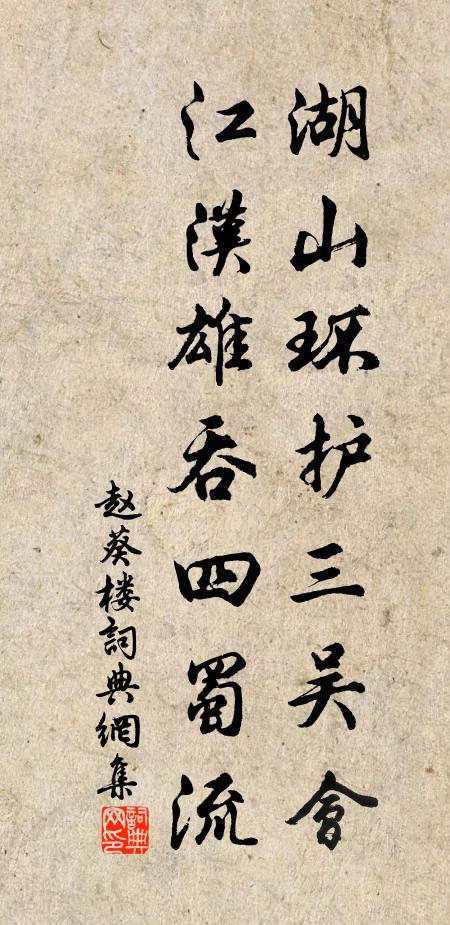 湖山环护三吴會
江漢雄吞四蜀流
赵葵楼詞典網集
詞典網印